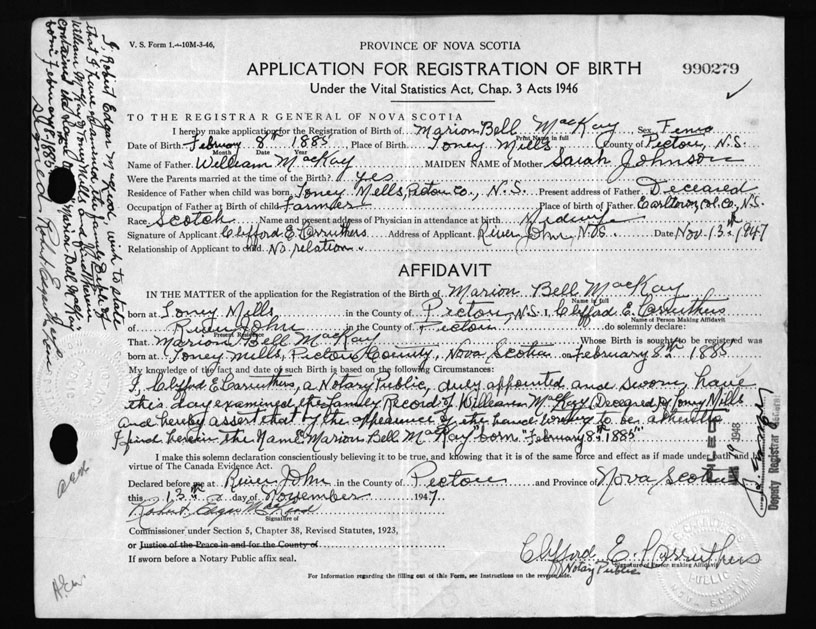 V. S. Form 1.—10M-3-46.
PROVINCE OF NOVA SCOTIA
APPLICATION FOR REGISTRATION OF BIRTH
990279
Under the Vital Statistics Act, Chap. 3 Acts 1946
TO THE REGISTRAR GENERAL OF NOVA SCOTIA
I hereby make application for the Registration of Birth of Marion Bell MacKay Sex
Print Name in full
Date of Birth February 8th 1885 Place of Birth Toney Mills County of Pictou, N.S.
Month Date Year
Name of Father William MacKay MAIDEN NAME of Mother Sarah Johnson
Were the Parents married at the time of Birth? yes
Residence of Father when child was born Toney Mills, Pictou Co., N.S. Present address of Father Deceased
Occupation of Father at Birth of child Farmer Place of birth of Father Earltown, Col. Co., N.S.
Race Scotch Name and present address of Physician in attendance at birth Midwife
Signature of Applicant Clifford E. Carruthers Address of Applicant River John, N.S. Date Nov. 13th 1947
Relationship of Applicant to child No relation
AFFIDAVIT
IN THE MATTER of the application for the Registration of the Birth of Marion Bell MacKay
Name in full
born at Toney Mills in the County of Pictou, N.S. I, Clifford E. Carruthers
Name of Person Making Affidavit
of River John in the County of Pictou do solemnly declare:
Present Residence
That Marion Bell MacKay Whose Birth is sought to be registered was
born at Toney Mills, Pictou County, Nova Scotia on February 8th 1885
My knowledge of the fact and date of such Birth is based on the following Circumstances:
I, Clifford E. Carruthers, a Notary Public, duly appointed and sworn, have
this day examined the Family Record of William McKay (Deceased) of Toney Mills
and hereby assert that by the appearance of the hand writing to be authentic
I find herein the Name Marion Bell MacKay born "February 8th 1885"
I make this solemn declaration conscientiously believing it to be true, and knowing that it is of the same force and effect as if made under oath and by
virtue of The Canada Evidence Act.
Declared before me at River John in the County of Pictou and Province of Nova Scotia
this 13th day of November 1947
Robert Edgar MacLeod
Signature of
Commissioner under Section 5, Chapter 38, Revised Statutes, 1923,
or Justice of the Peace in and for the County of
If sworn before a Notary Public affix seal.
Clifford E. Carruthers
Signature of Person making Affidavit
Notary Public
For Information regarding the filling out of this Form, see Instructions on the reverse side.
I, Robert Edgar MacLeod, wish to state
that I have examined the family Bible of
William McKay of Toney Mills and find therein
contained the name of Marion Bell McKay
born February 8, 1885
Signed Robert Edgar MacLeod
FILED
1948
Deputy Registrar General